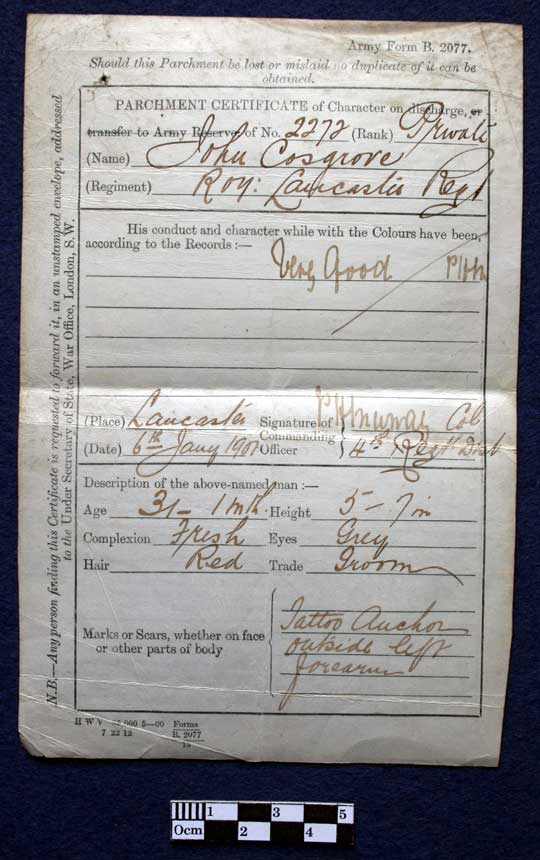 Army Form B. 2077.
Should this Parchment be lost or mislaid no duplicate of it can be
obtained.
PARCHMENT CERTIFICATE of Character on discharge, or
transfer to Army Reserve, of No. 2272 (Rank) Private
(Name) John Cosgrove
(Regiment) Roy: Lancaster Regt
His conduct and character while with the Colours have been,
according to the Records :—
Very Good
(Place) Lancaster Signature of Col
Commanding
(Date) 6th Jany 1901 Officer 4th Regtl Dist
Description of the above-named man :—
Age 31 - 1 mth. Height 5 - 7 in
Complexion Fresh Eyes Grey
Hair Red Trade Groom
Marks or Scars, whether on face
or other parts of body
Tattoo Anchor
outside left
forearm
H W V 000 5—00 Forms
7 22 12 B. 2077
N.B.—Any person finding this Certificate is requested to forward it, in an unstamped envelope, addressed
to the Under Secretary of State, War Office, London, S.W.
1 3 5
0cm 2 4